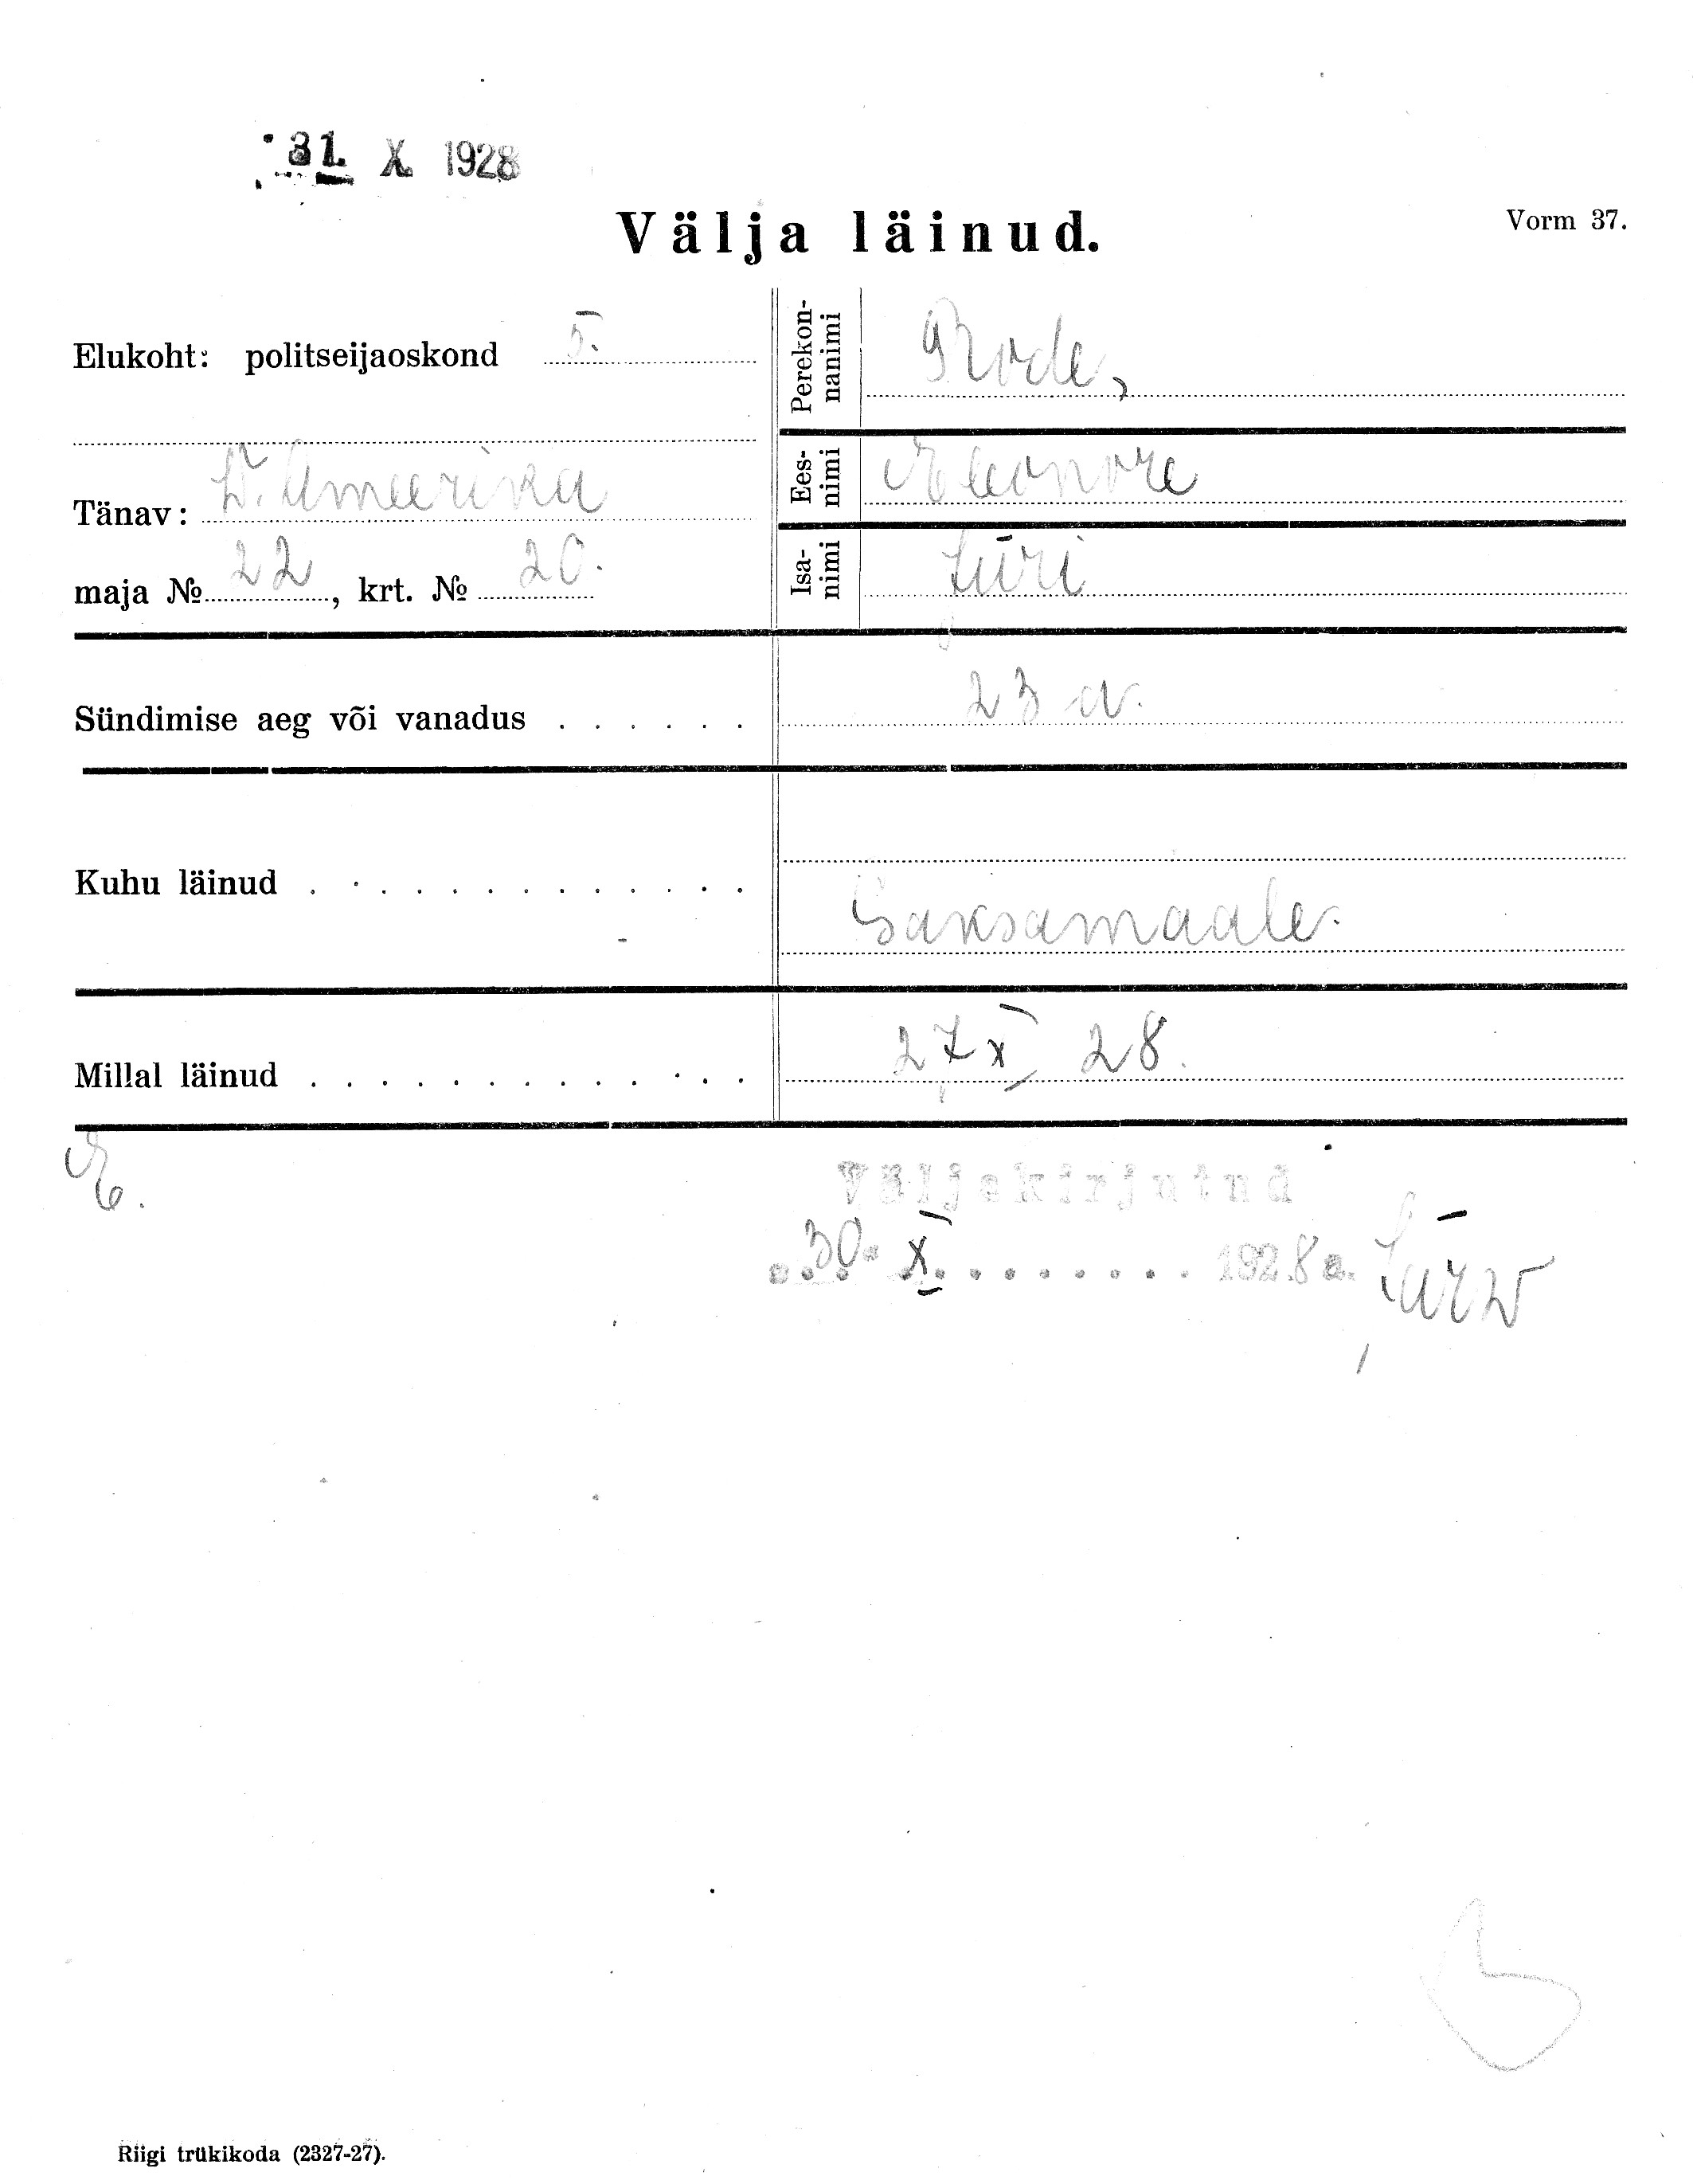 31. X 1928
Välja läinud.
Vorm 37.
Elukoht: politseijaoskond 5.
Perekonnanimi Rode,
Tänav: V. Ameerika
Eesnimi Eleonore
maja № 22, krt. № 20.
Isanimi Jüri
Sündimise aeg või vanadus . . . . . . 23 a.
Kuhu läinud . . . . . . . . . . . . . Saksamaale.
Millal läinud . . . . . . . . . . . . . 27 X 28.
E.
Väljakirjutud
30. X. 1928 a.
Riigi trükikoda (2327-27).